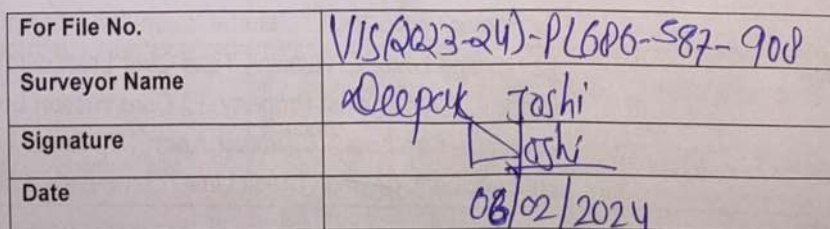 For File No. VIS(2023-24)-PL686-587-908
Surveyor Name Deepak Joshi
Signature Joshi
Date 08/02/2024